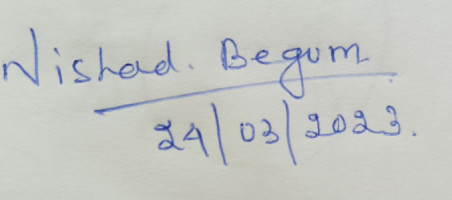 Nishad. Begum
24/03/2023.